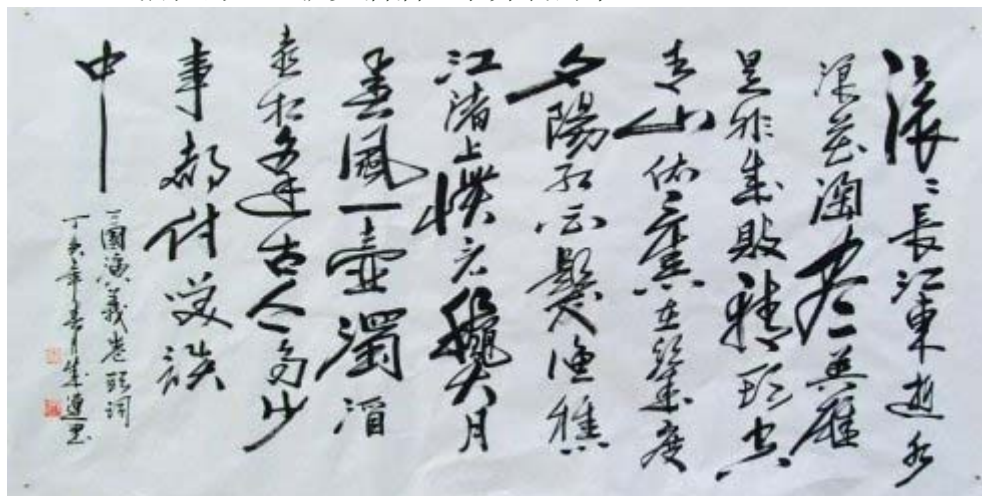 滚〻長江東逝水
浪花淘尽英雄
是非成敗轉頭空
青山依舊在幾度
夕陽紅白髮漁樵
江渚上慣看龝月
春風一壺濁酒
喜相逢古今多少
事都付笑談
中
三國演義卷頭詞
丁亥年春月